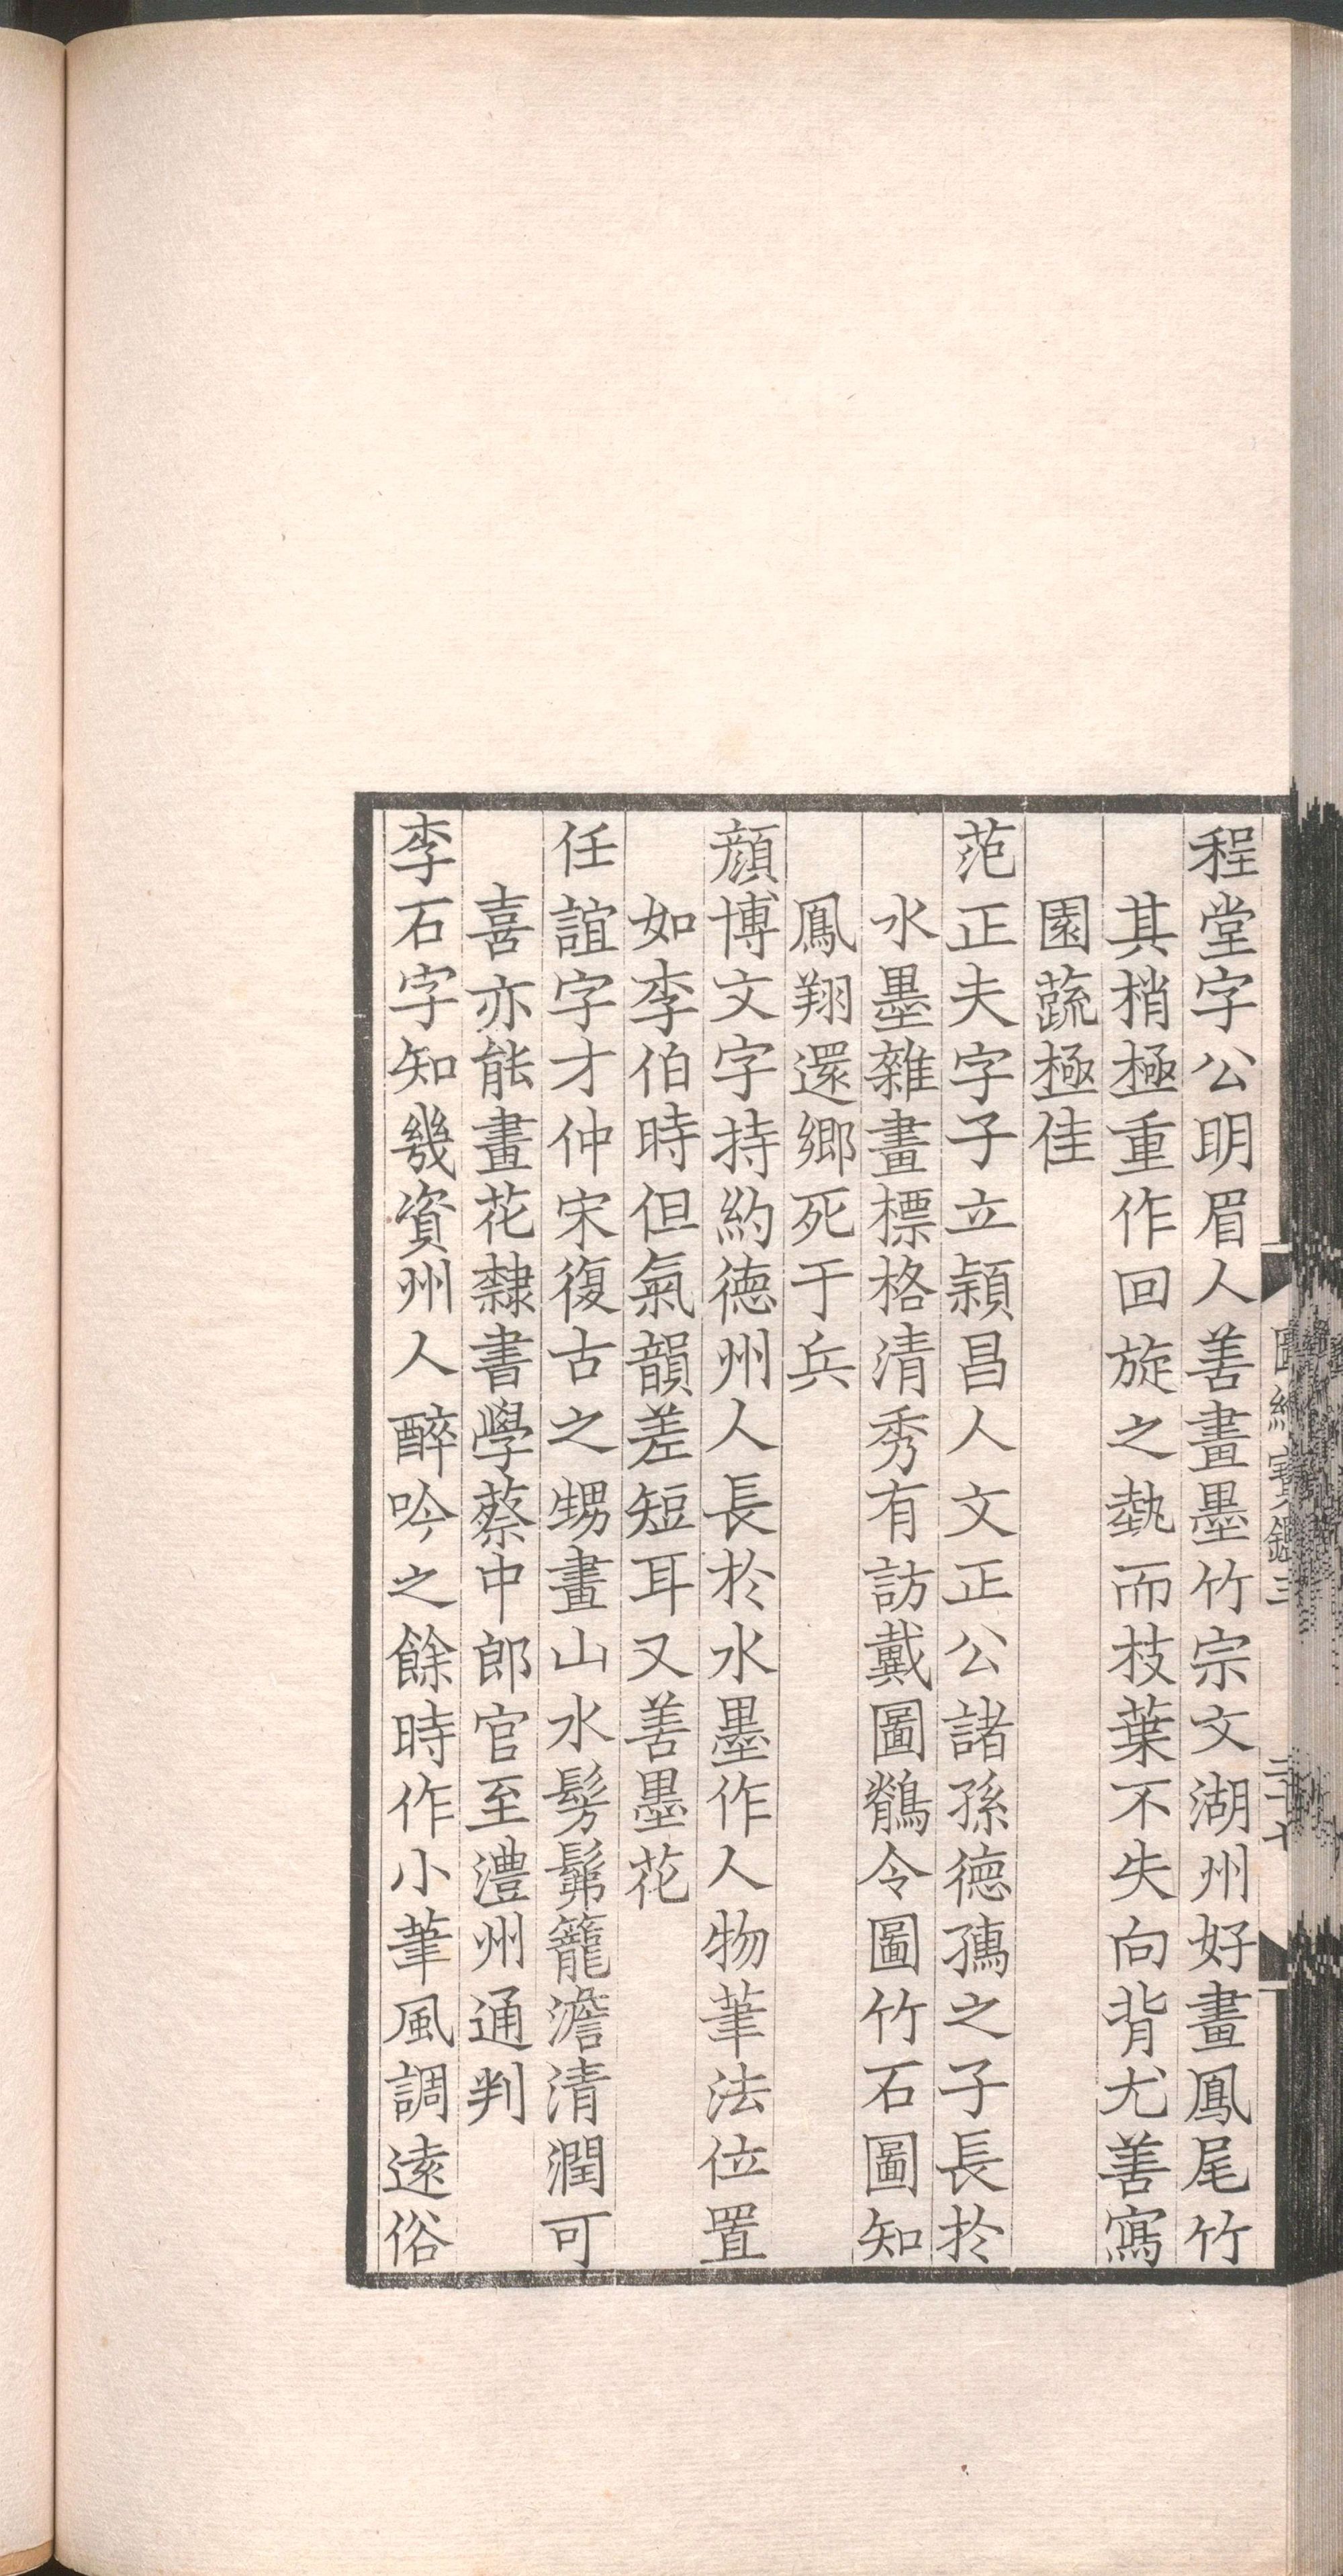 程堂字公明眉人善畫墨竹宗文湖州好畫鳳尾竹
其梢極重作回旋之埶而枝葉不失向背尤善寫
園蔬極佳
范正夫字子立潁昌人文正公諸孫德孺之子長於
水墨雜畫標格清秀有訪戴圖鶺令圖竹石圖知
鳳翔還鄉死于兵
顏博文字持約德州人長於水墨作人物筆法位置
如李伯時但氣韻差短耳又善墨花
任誼字才仲宋復古之甥畫山水髣髴籠澹清潤可
喜亦能畫花隸書學蔡中郎官至澧州通判
李石字知幾資州人醉吟之餘時作小筆風調遠俗